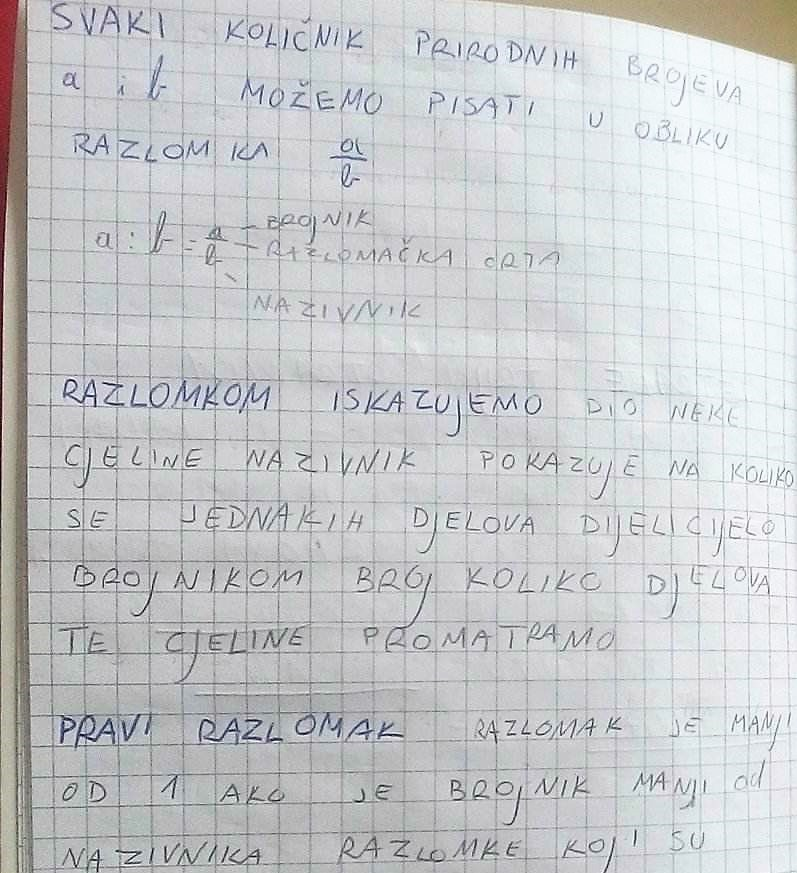 SVAKI KOLIČNIK PRIRODNIH BROJEVA
a i b MOŽEMO PISATI U OBLIKU
RAZLOMKA a/b
a : b = a/b - BROJNIK
- RAZLOMAČKA CRTA
NAZIVNIK
RAZLOMKOM ISKAZUJEMO DIO NEKE
CJELINE NAZIVNIK POKAZUJE NA KOLIKO
SE JEDNAKIH DJELOVA DIJELI CIJELO
BROJNIKOM BROJ KOLIKO DJELOVA
TE CJELINE PROMATRAMO
PRAVI RAZLOMAK RAZLOMAK JE MANJI
OD 1 AKO JE BROJNIK MANJI od
NAZIVNIKA RAZLOMKE KOJI SU